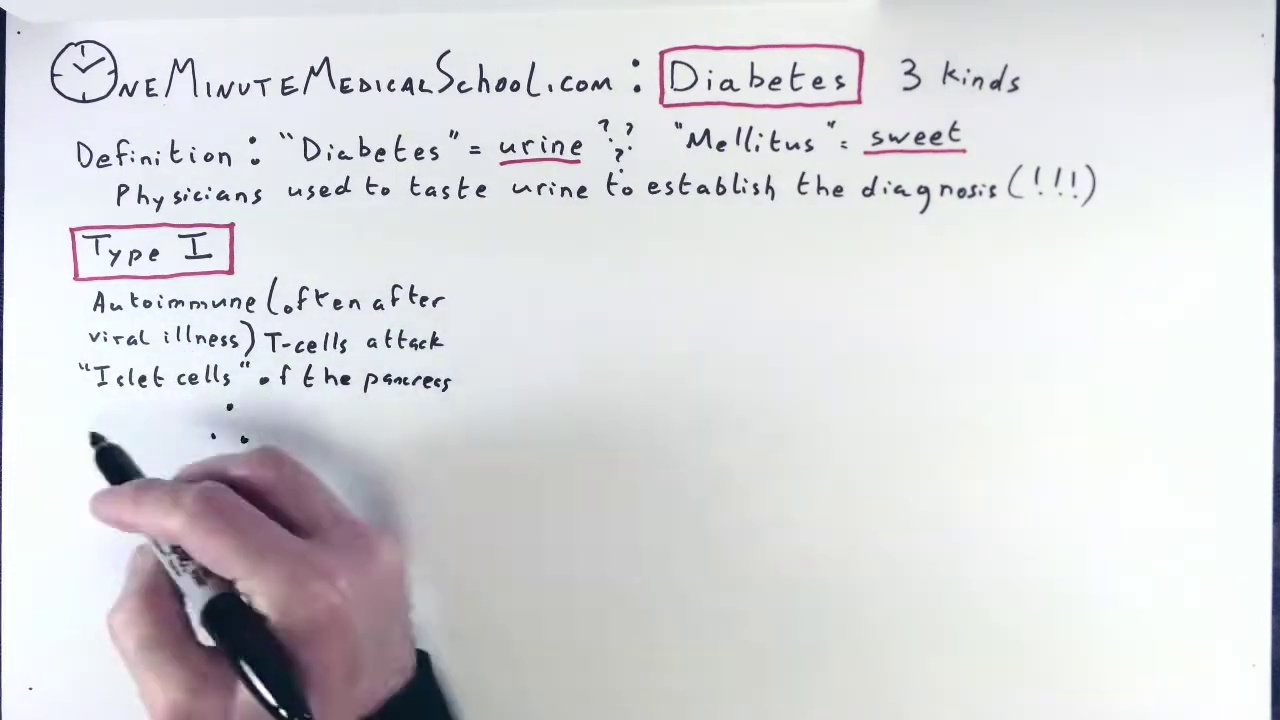 OneMinuteMedicalSchool.com : Diabetes 3 kinds
Definition : "Diabetes" = urine ??? "Mellitus" = sweet
Physicians used to taste urine to establish the diagnosis (!!!)
Type I
Autoimmune (often after
viral illness) T-cells attack
"Islet cells" of the pancreas
∴